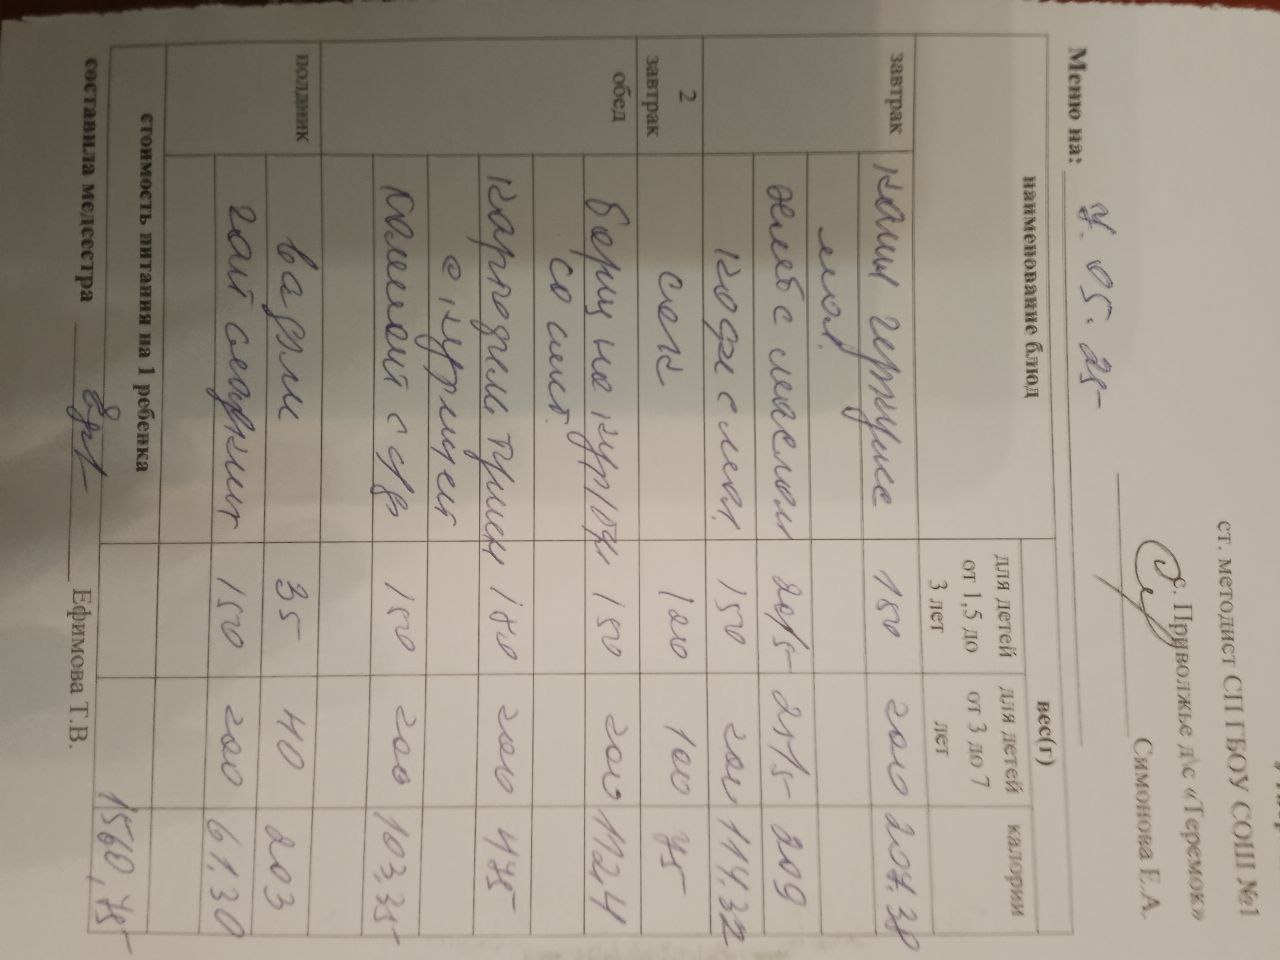 ст. методист СП ГБОУ СОШ №1
с. Приволжье д\с «Теремок»
Симонова Е.А.
Меню на: 7. 05. 25
наименование блюд
вес(г)
для детей от 1,5 до 3 лет
для детей от 3 до 7 лет
калории
завтрак
каша 150 200 207.38
мол.
хлеб с маслом 20/5 25/5 209
кофе с мол. 150 200 114.32
2 завтрак
сок 100 100 75
обед
борщ на кур 150 200 112,4
со смет.
картофель тушен 180 200 475
с курицей
компот с 150 200 103,35
полдник
вафли 35 40 203
чай 150 200 61,30
стоимость питания на 1 ребенка
1560,75
составила медсестра Ефимова Т.В.